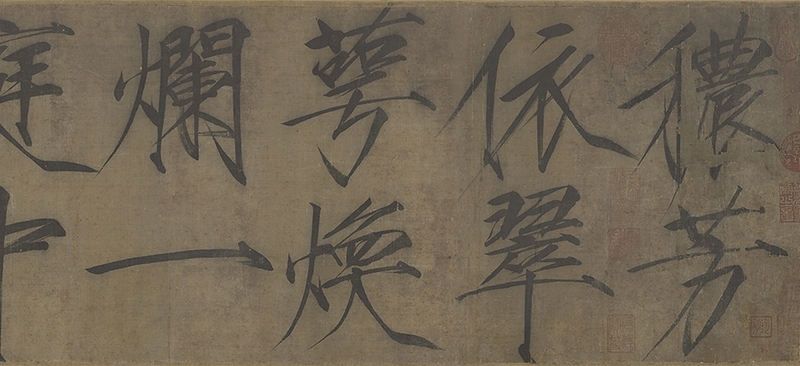 穠芳
依翠
萼煥
爛一
庭中